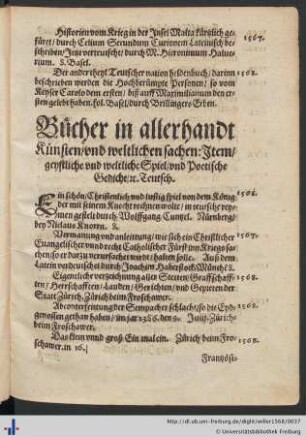 Historien vom Krieg in der Jnsel Malta kürtzlich ge- 1567.
füret/ durch Celium Secundum Curionem Lateinisch be-
schriben/ Jetz verteutscht/ durch M. Hieronimum Halue-
rium. 8. Basel.
Der ander theyl Teutscher nation heldenbuch/ darinn 1568.
beschriben werden die Hochberümpte Personen/ so von
Keyser Carolo dem ersten/ biß auff Maximilianum den er-
sten gelebt haben. fol. Basel/ durch Brillingers Erben.
Bücher in allerhandt
Künsten/ vnd weltlichen sachen: Jtem/
geystliche vnd weltliche Spiel/ vnd Poetische
Gedicht/ ꝛc. Teutsch.
Ein schön/ Christenlich vnd lustig spiel von dem König
der mit seinem Knecht rechnen wolt/ in teutsche rey-
men gestelt durch Wolffgang Cuntzel. Nürnberg/
bey Niclaus Knorrn. 8.
Vermanung vnd anleitung/ wie sich ein Christlicher 1567.
Euangelischer vnd recht Catholischer Fürst in Kriegs sa-
chen/ so er darzu verursachet wurd/ halten solle. Auß dem
Latein verdeutschet durch Joachim Haberstock. Münchē 8.
Eigentliche verzeichnung aller Stetten/ Graffschaff- 1568.
ten/ Herrschafften/ Landen/ Gerichten/ vnd Gepieten der
Statt Zürich. Zürich beim Froschawer.
Abconterfeitung der Sempacher schlacht/ so die Eyd-
gnossen gethan haben/ im jar 1386. den 9. Julij. Zürich/
beim Froschawer.
Das klein vnnd groß Ein mal ein. Zürich beim Fro- 1568.
schawer. in 16.
Frantzösi-
http://dl.ub.uni-freiburg.de/diglit/willer1568/0037
© Universitätsbibliothek Freiburg